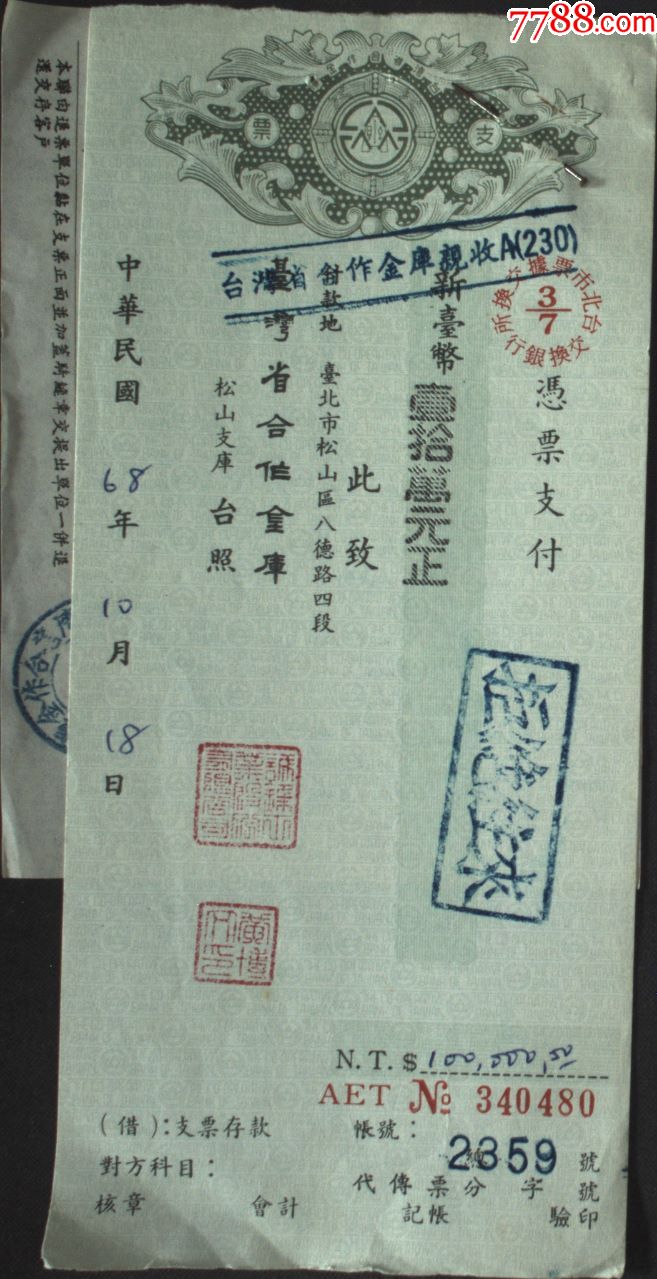 7788.com
支票
台灣省合作金庫親收A(230)
台北市票據交換所
3/7
交換銀行
憑票支付
新臺幣壹拾萬元正
此致
付款地 臺北市松山區八德路四段
臺灣省合作金庫
松山支庫 台照
中華民國 68年 10月 18日
拒絕往來
N.T.$ 100,000.00
AET № 340480
(借):支票存款
帳號:
2359
號
對方科目:
代傳票分 總 字 號
核章 會計 記帳 驗印
本聯由退票單位黏在支票正面並加蓋騎縫章交提出單位一併退
還交存客戶